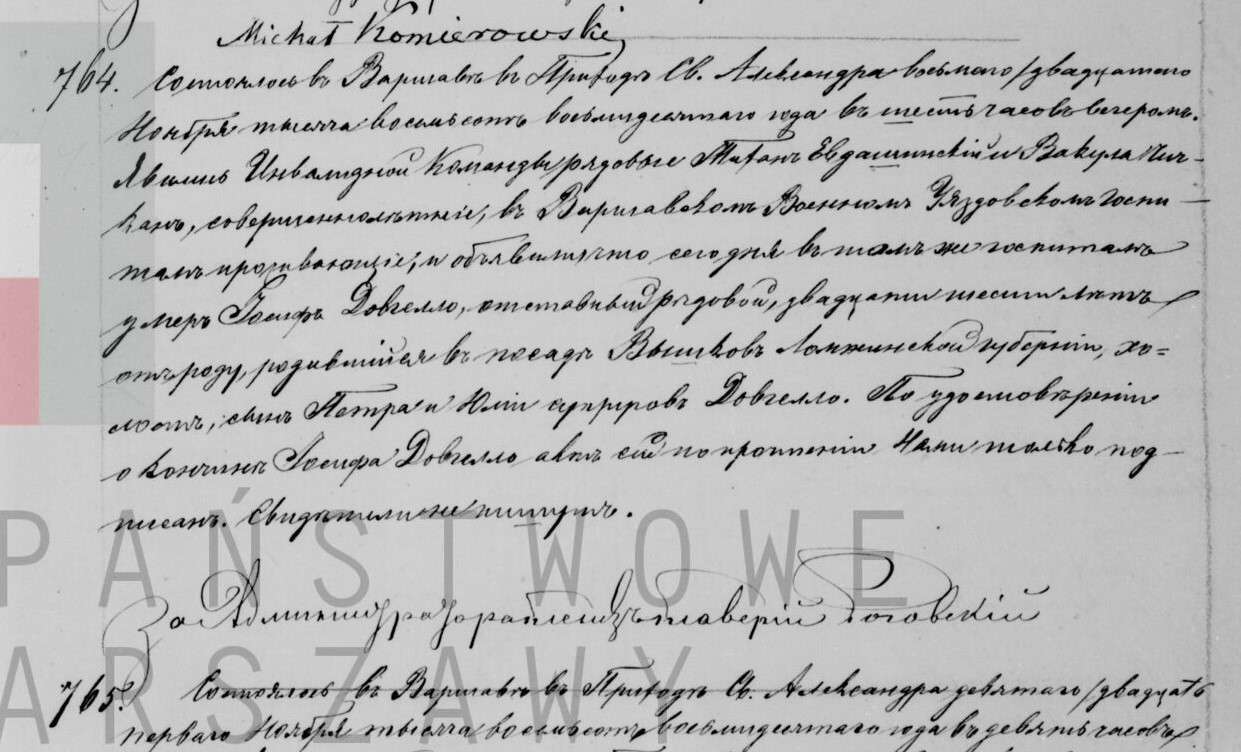 Michał Komierowski
764. Состоялось въ Варшавѣ въ Приходѣ Св. Александра восьмаго/двадцатаго
Ноября тысяча восемьсотъ восьмидесятаго года въ шесть часовъ вечеромъ.
Явились Инвалидной Команды рядовые Евдашинскій и Вакула Пич-
канъ, совершеннолѣтніе, въ Варшавскомъ Военномъ Уяздовскомъ Госпи-
талѣ проживающіе, и объявили, что сегодня въ томъ же госпиталѣ
умеръ Іосифъ Довгелло, отставный рядовой, двадцати шести лѣтъ
отъ роду, родившійся въ посадѣ Вышковъ Ломжинской губерніи, хо=
лостъ, сынъ Петра и Юліи супруговъ Довгелло. По удостовѣреніи
о кончинѣ Іосифа Довгелло актъ сей по прочтеніи Нами только под-
писанъ. Свидѣтели не пишутъ.
За Администратора Роговскій
765. Состоялось въ Варшавѣ въ Приходѣ Св. Александра девятаго/двадцать
перваго Ноября тысяча восемьсотъ восьмидесятаго года въ девять часовъ
PAŃSTWOWE
ARSZAWY